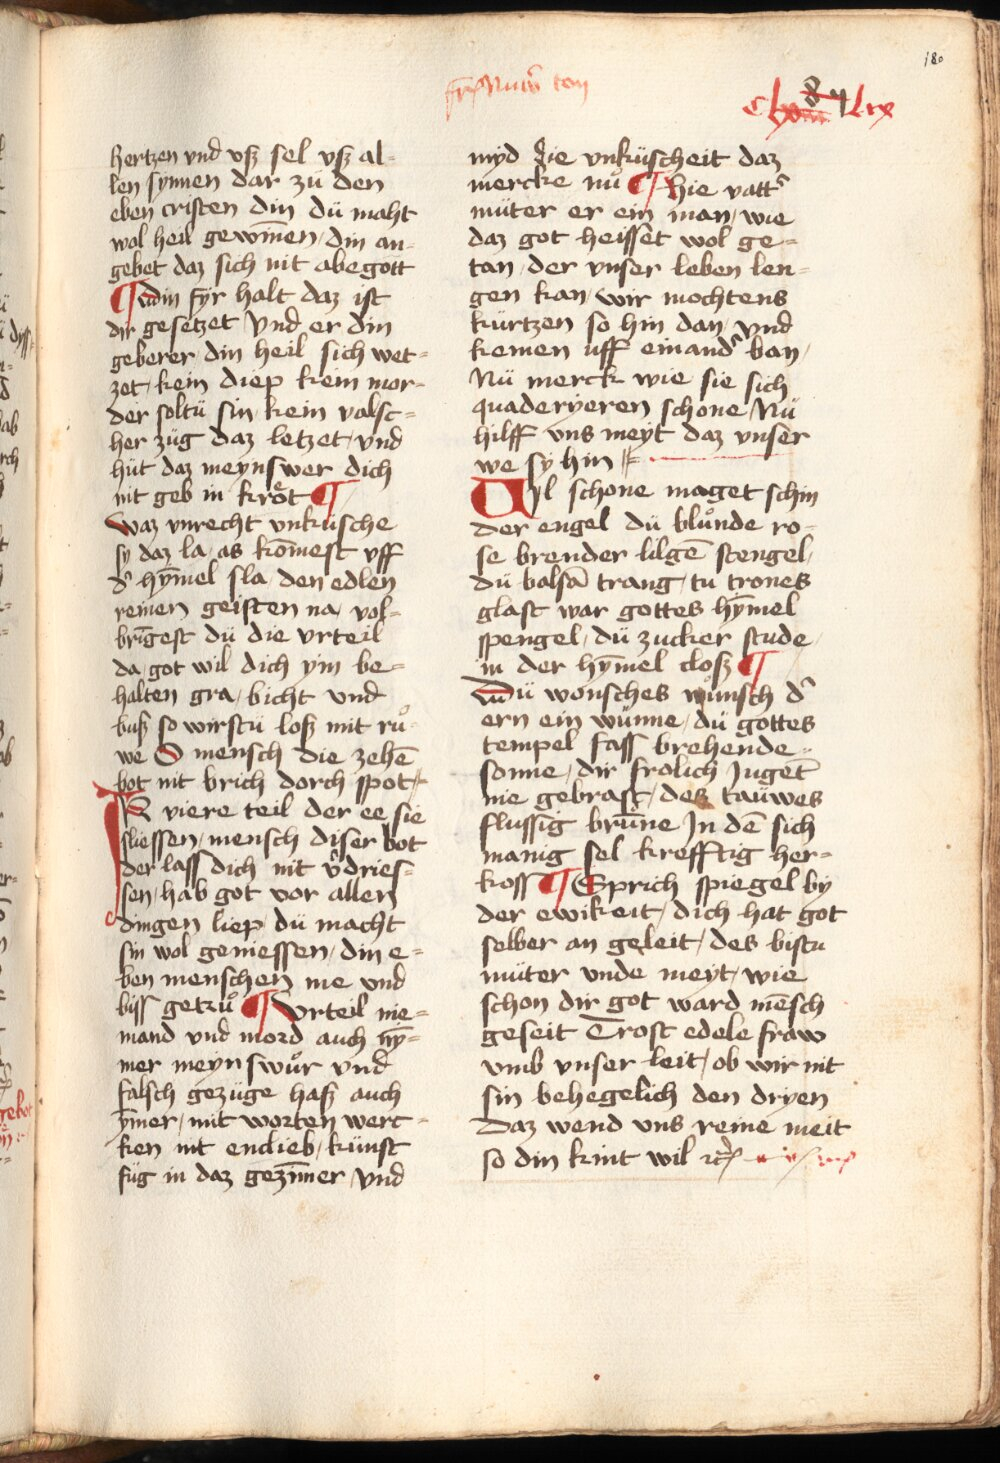 180
Nuwͤ ton
hertzen vnd vsz sel vsz al-
len synnen dar zü den
eben cristen din dü maht
wol heil gewīnen / din an-
gebet daz sich nit abegott
¶ din fÿr halt daz ist
dir gesetzet / vnd er din
geberer / din heil sich wet-
zet / kein diep kein mor-
der soltü sin / kein valsc-
her züg daz letzet / vnd
hüt daz meynswer dich
nit geb in krͦot ¶
Waz vnrecht vnküsche
sy daz la / as kōmest vff
dˀ hȳmel sla / den edlen
reinen geisten na / vol-
brīgest dü die vrteil
da / got wil dich ym be-
halten gra / bicht vnd
busz so wirstu losz mit ruͦ-
we O mensch die zehē
bot nit brich dorch spot
IR viere teil der ee sie
sliessen / mensch diser bot
der lass dich nit v̂dries-
sen / hab got vor allen
dingen liep / dü macht
sin wol geniessen / din e-
ben menschen me vnd
byss getruͦ ¶ Vrteil nie-
mand vnd mord auch ny̅-
mer meyn swuͦr vnd
falsch gezüge hasz auch
ȳmer / mit worten werc-
ken nit endieb / künst
füg in daz gezīmer / vnd
myd die vnküscheit daz
mercke nuͦ ¶ Hie vattˀ
müter er ein man / wie
daz got heisset wol ge-
tan / der vnser leben len-
gen kan / wir mochtens
kürtzen so hin dan / vnd
kemen uff einandˀ ban /
Nü merck wie sie sich
quaderÿeren schone / Nü
hilff vns meÿt daz vnser
we sÿ hin
Vyl schone maget schin
der engel dü bluͦnde ro-
se brender lilgē stengel /
dü balsā trang / tu trones
glast war gottes hȳmel
spengel / dü zucker stude /
in der hȳmel closz ¶
Dü wonsches wuͦnsch dˀ
ern ein wünne / dü gottes
tempel fass brehende-
sonne / dir frolich Jugēt
nie gebrast / des taüwes
flussig brūne In dē sich
manig sel krefftig her-
koss ¶ Sprich spiegel by
der ewikeit / dich hat got
selber an geleit / des bistu
müter vnde meyt / wie
schon dir got ward mēsch
geseit Trost edele fraw
vmb vnser leit / ob wir nit
sin behegelich den dryen
Daz wend vns reine meit
so din kint wil